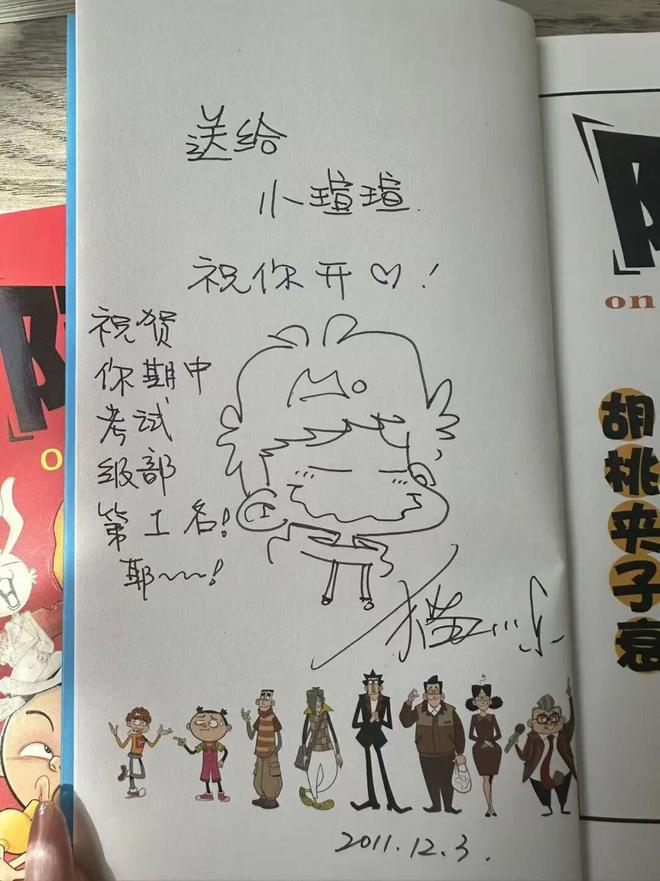 送给
小瑄瑄.
祝你开♡!
祝贺
你期中
考试
级部
第1名!
耶~~~!
猫小乐
2011.12.3.
on
胡桃夹子衰